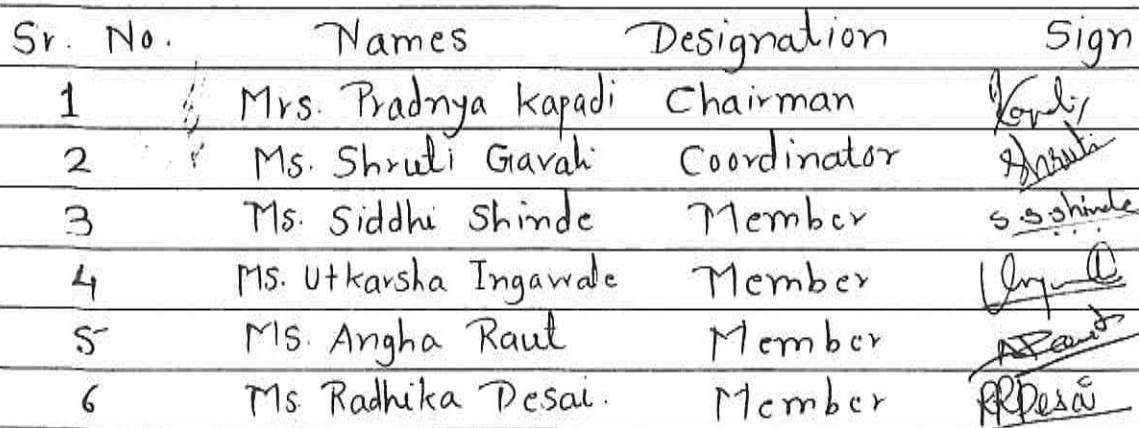 Sr. No. Names Designation Sign
1 Mrs. Pradnya Kapadi Chairman
2 Ms. Shruti Gavali Coordinator Shruti
3 Ms. Siddhi Shinde Member s.s.shinde
4 Ms. Utkarsha Ingawale Member
5 Ms. Angha Raut Member
6 Ms. Radhika Desai. Member RRDesai